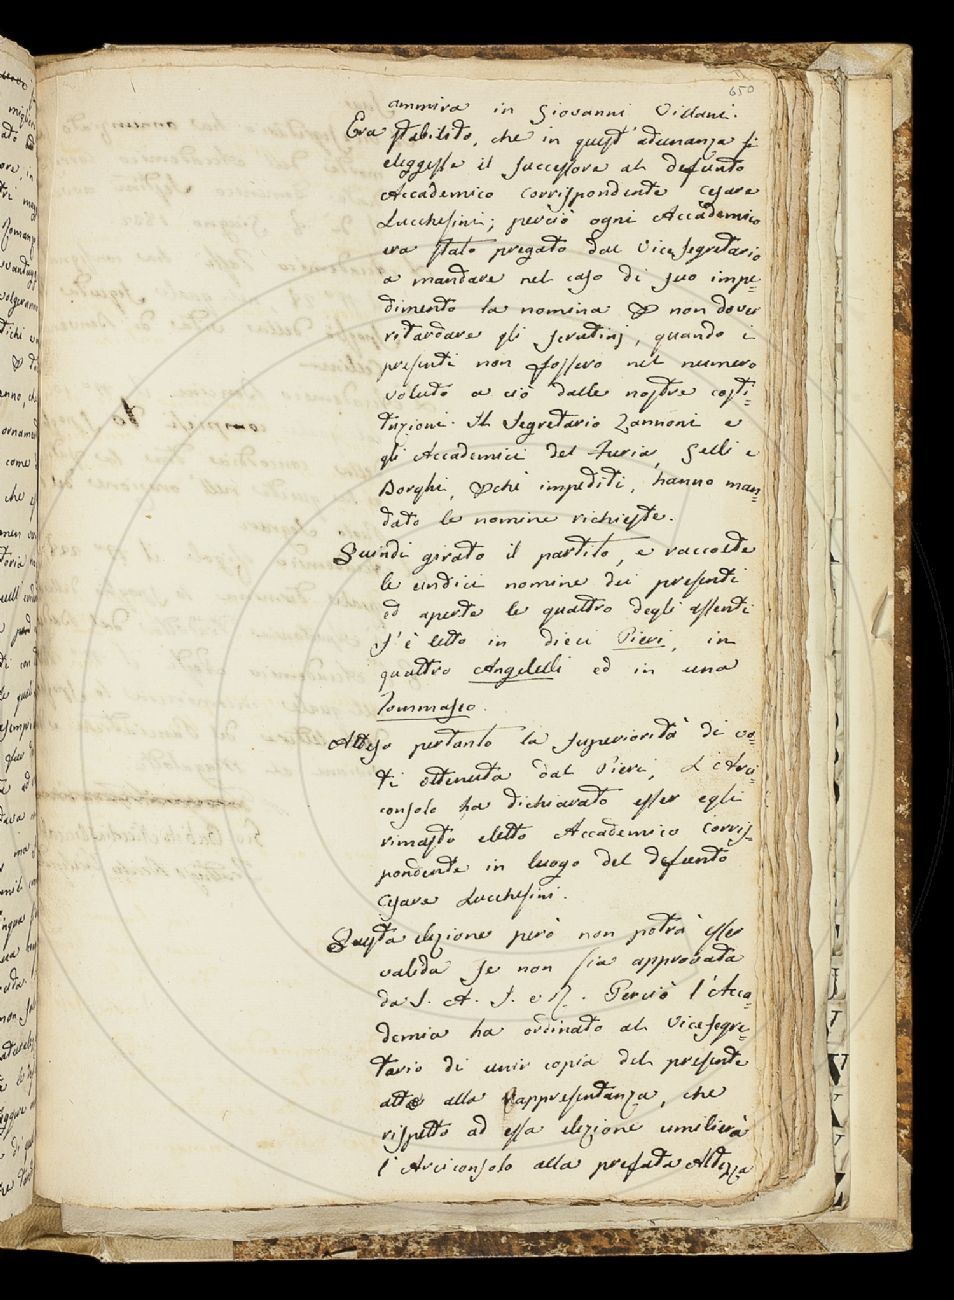 650
ammira in Giovanni Villani.
Era stabilito, che in quest'adunanza si
eleggesse il successore al defunto
Accademico corrispondente Cesare
Lucchesini; perciò ogni Accademico
era stato pregato dal Vicesegretario
a mandare nel caso di suo impe=
dimento la nomina & non dover
ritardare gli scrutinj, quando i
presenti non fossero nel numero
voluto a ciò dalle nostre costi=
tuzioni. Il Segretario Zannoni e
gli Accademici del Furia, Gelli e
Borghi, & chi impediti, hanno man=
dato le nomine richieste.
Quindi girato il partito, e raccolte
le undici nomine dei presenti
ed aperte le quattro degli assenti
s'è letto in dieci Pieri, in
quattro Angelelli ed in una
Tommaseo.
Atteso pertanto la superiorità di vo=
ti ottenuta dal Pieri, L'Arci=
consolo ha dichiarato esser egli
rimasto eletto Accademico corris=
pondente in luogo del defunto
Cesare Lucchesini.
Questa elezione però non potrà esser
valida se non sia approvata
da S. A. I. e R. Perciò l'Acca=
demia ha ordinato al Vicesegre=
tario di unir copia del presente
atto alla rappresentanza, che
rispetto ad essa elezione umilierà
l'Arciconsolo alla prefata Altezza